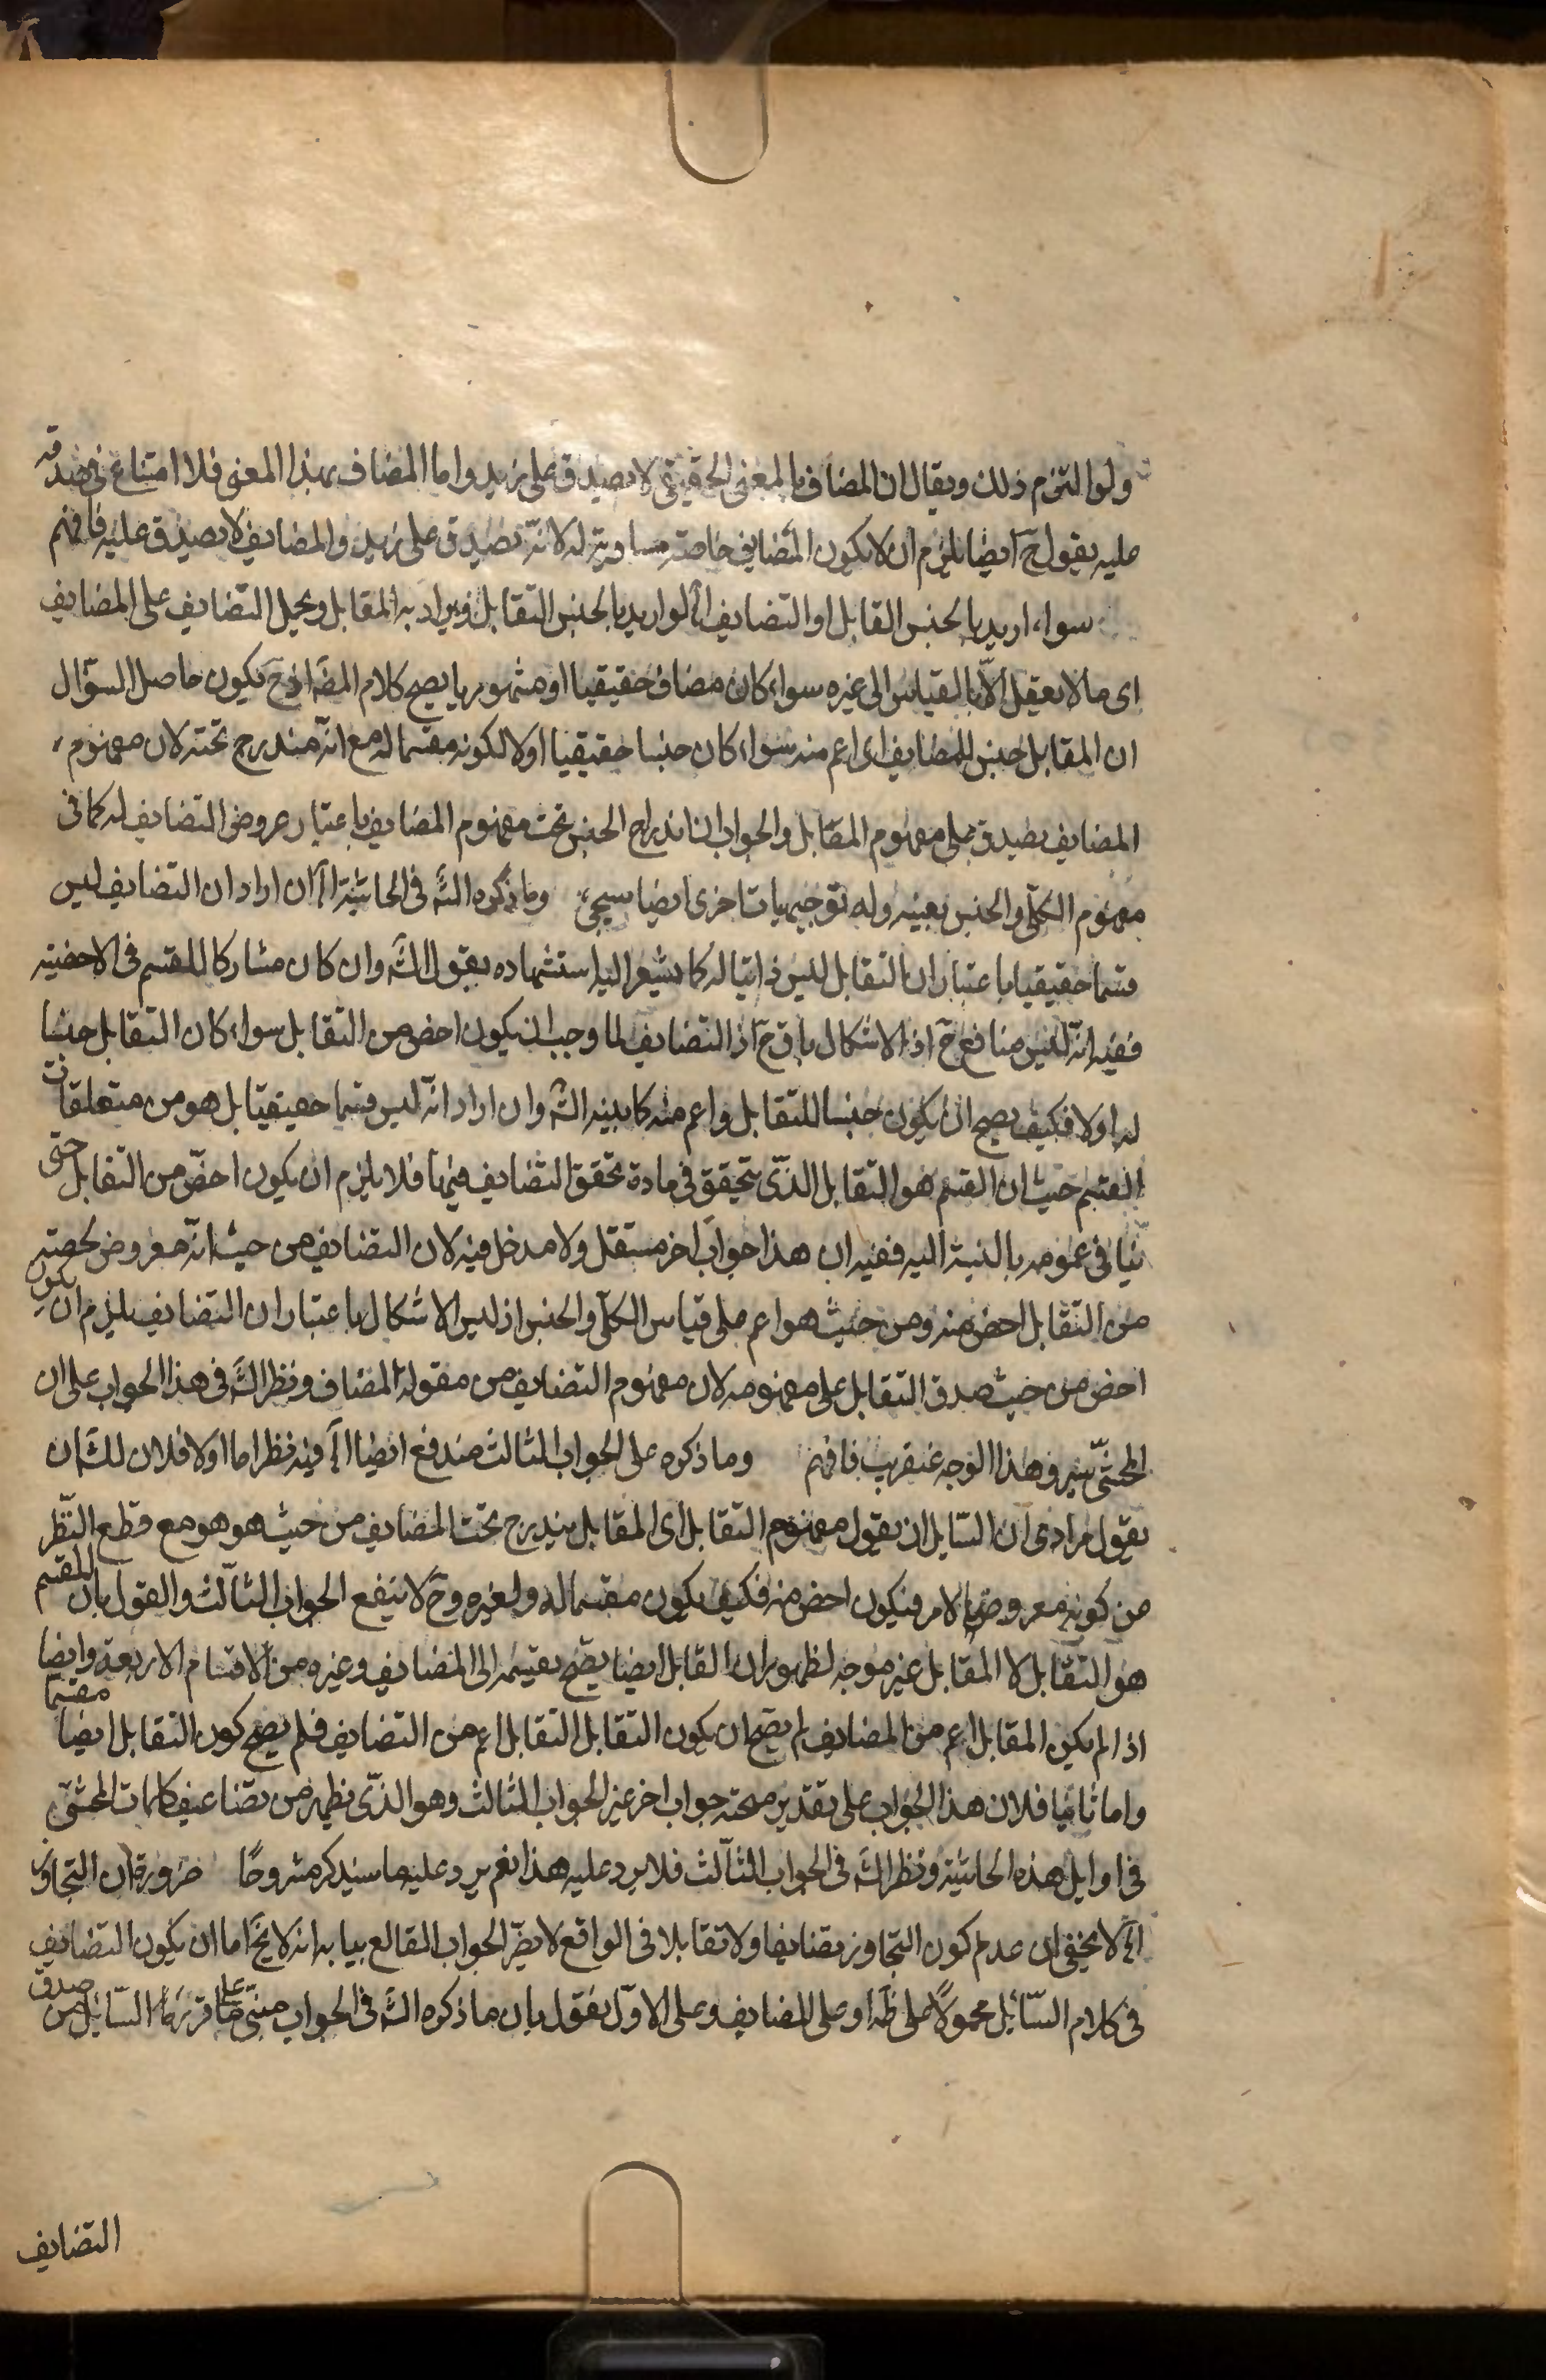 ولو التزم ذلك ويقال ان المضاف بالمعنى الحقيقي لا يصدق على زيد واما المضاف بهذا المعنى فلا امتناع في صدقه
عليه يقول ح ايضا يلزم ان لا يكون المضايف خاصة مساوية له لانه تصدق على زيد والمضايف لا يصدق عليه فافهم
سواء اريد بالجنس القابل او التضايف اه لو اريد بالجنس التقابل ويراد به المقابل ويحمل التضايف على المضايف
اى ما لا يعقل الا بالقياس الى غيره سواء كان مضافا حقيقيا او مشهوريا يصح كلام المض اذ ح يكون حاصل السؤال
ان المقابل جنس للمضايف اى اعم منه سواء كان جنسا حقيقيا اولا لكونه مقسما له مع انه مندرج تحته لان مفهوم
المضايف يصدق على مفهوم المقابل والجواب ان اندراج الجنس تحت مفهوم المضايف باعتبار عروض التضايف له كما في
مفهوم الكلى والجنس بعينه وله توجيهات اخرى ايضا سيجئ وما ذكره الش في الحاشية اه ان اراد ان التضايف ليس
قسما حقيقيا باعتبار ان التقابل ليس ذاتيا له كما يشعر اليه استشهاده بقول الش وان كان مشاركا للمقسم في الاخصية
ففيه انه ليس منافع ح اذ الاشكال باق ح اذ التضايف لما وجب ان يكون اخص من التقابل سواء كان التقابل جنسا
له اولا فكيف يصح ان يكون جنسا للتقابل واعم منه كما بينه الش وان اراد انه ليس قسما حقيقيا بل هو من متعلقات
القسم حيث ان القسم هو التقابل الذى يتحقق في مادة تحقق التضايف فيها فلا يلزم ان يكون اخص من التقابل حتى
ينافى عمومه بالنسبة اليه ففيه ان هذا جواب اخر مستقل ولا مدخل فيه لان التضايف من حيث انه معروض لحصته
من التقابل اخص منه ومن حيث هو اعم على قياس الكلى والجنس اذ ليس الاشكال باعتبار ان التضايف يلزم ان يكون
اخص من حيث صدق التقابل على مفهومه لان مفهوم التضايف من مقولة المضاف ونظر الش في هذا الجواب على ان
المحشى وهذا الوجه عنقريب فافهم وما ذكره على الجواب الثالث مندفع ايضا اه فيه نظر اما اولا فلان للش ان
يقول مرادى ان السايل ان يقول مفهوم التقابل اى المقابل يندرج تحت المضايف من حيث هو هو مع قطع النظر
من كونه معروضا لامر فيكون اخص منه فكيف يكون مقسما له ولغيره وح لا ينفع الجواب الثالث والقول بان المقسم
هو التقابل لا المقابل غير موجه لظهور ان المقابل ايضا يصح تقسيمه الى المضايف وغيره من الاقسام الاربعة وايضا
اذا لم يكن المقابل اعم من المضايف لم يصح ان يكون التقابل التقابل اعم من التضايف فلم يصح كون التقابل ايضا مقسما
واما ثانيا فلان هذا الجواب على تقدير صحته جواب اخر غير الجواب الثالث وهو الذى يظهر من تضاعيف كلمات المحشى
في اوايل هذه الحاشية ونظر الش في الجواب الثالث فلا يرد عليه هذا نعم يرد عليه ما سيذكر مشروحا ضرورة ان التجاوز
اه لا يخفى ان عدم كون التجاوز تضايفا ولا تقابلا في الواقع لا يضر الجواب بيانه انه لا يخ اما ان يكون التضايف
في كلام السائل محمولا على ظه او على المضايف وعلى الاول يقول بان ما ذكره الش في الجواب مبنى على ما السائل من صدق
التضايف